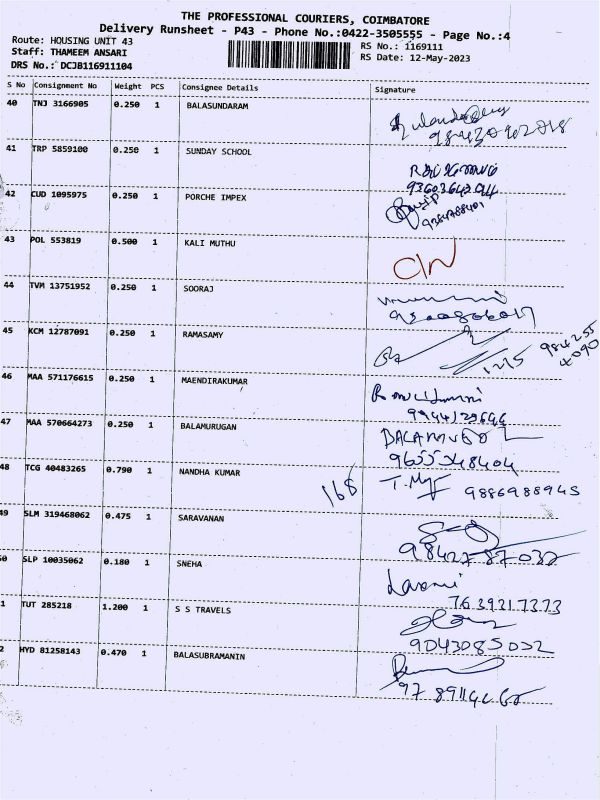 THE PROFESSIONAL COURIERS, COIMBATORE
Delivery Runsheet - P43 - Phone No.:0422-3505555 - Page No.:4
Route: HOUSING UNIT 43
RS No.: 1169111
Staff: THAMEEM ANSARI
RS Date: 12-May-2023
DRS No.: DCJB116911104
S No Consignment No Weight PCS Consignee Details Signature
40 TNJ 3166905 0.250 1 BALASUNDARAM
41 TRP 5859100 0.250 1 SUNDAY SCHOOL
42 CUD 1095975 0.250 1 PORCHE IMPEX
9384788401
43 POL 553819 0.500 1 KALI MUTHU
44 TVM 13751952 0.250 1 SOORAJ
45 KCM 12787091 0.250 1 RAMASAMY
12/5
984255
4090
46 MAA 571176615 0.250 1 MAENDIRAKUMAR
47 MAA 570664273 0.250 1 BALAMURUGAN
48 TCG 40483265 0.790 1 NANDHA KUMAR
168
9886988945
49 SLM 319468062 0.475 1 SARAVANAN
98422 87032
50 SLP 10035062 0.180 1 SNEHA
Laxmi
7639217373
1 TUT 285218 1.200 1 S S TRAVELS
9043085002
2 HYD 81258143 0.470 1 BALASUBRAMANIN